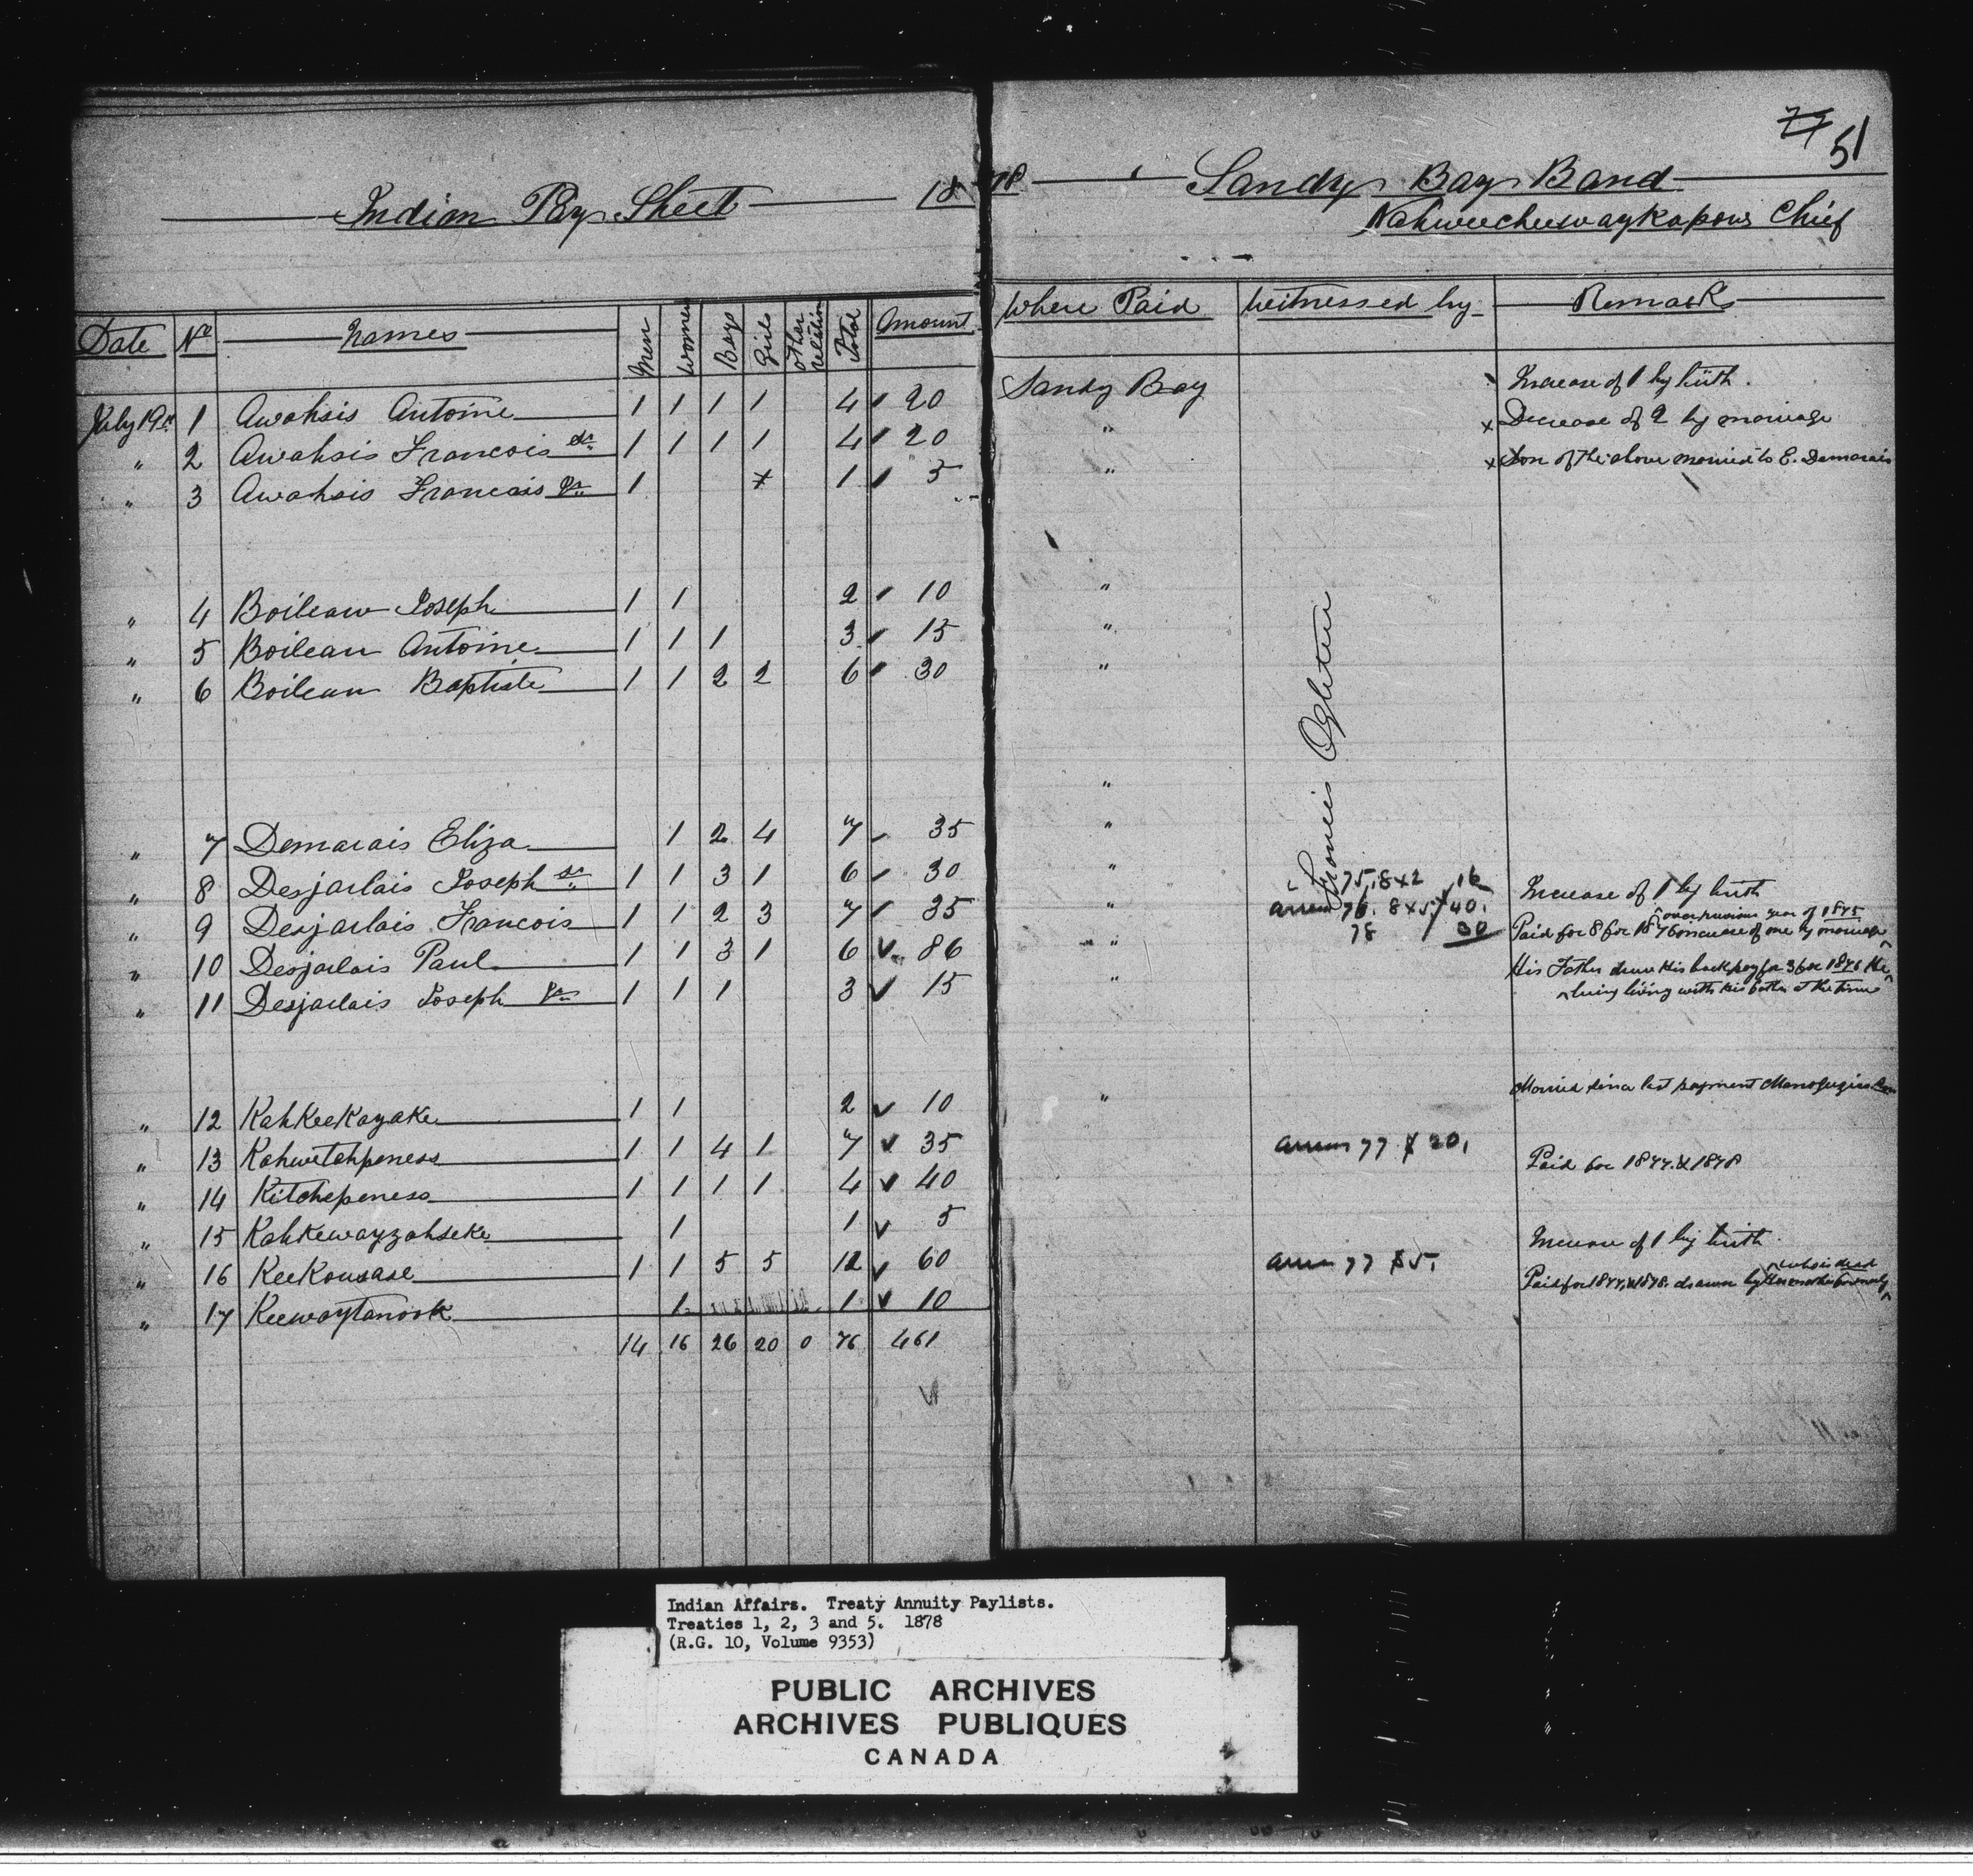 77 51
Indian Pay Sheet 1878 Sandy Bay Band
Nahweecheewaykapow Chief
Date No Names Men Women Boys Girls Other relation Total Amount Where Paid Witnessed by Remarks
July 19th 1 Awahsis Antoine 1 1 1 1 4 20 Sandy Bay Increase of 1 by birth.
" 2 Awahsis Francois Sr 1 1 1 1 4 20 " x Decrease of 2 by marriage
" 3 Awahsis Francois Jr 1 x 1 5 " x Son of the above married to E. Demarais
" 4 Boileau Joseph 1 1 2 10 "
" 5 Boileau Antoine 1 1 1 3 15 "
" 6 Boileau Baptiste 1 1 2 2 6 30 "
"
Francis Ogletree
" 7 Demarais Eliza 1 2 4 7 35 "
" 8 Desjarlais Joseph Sr 1 1 3 1 6 30 " 75, 8x2 16
" 9 Desjarlais Francois 1 1 2 3 7 35 " Arrears 76. 8x5 40. Increase of 1 by birth
" 10 Desjarlais Paul 1 1 3 1 6 86 " 78 30 Paid for 8 for 1876 increase of one by marriage
over previous year of 1875
" 11 Desjarlais Joseph Jr 1 1 1 3 15 " His Father drew his back pay for 3 for 1876 He
being living with his father at the time
" 12 KahKeeKayake 1 1 2 10 " Married since last payment
" 13 Kahwetahpeness 1 1 4 1 7 35
" 14 Kitchepeness 1 1 1 1 4 40 Arrears 77 $20. Paid for 1877 & 1878
" 15 Kahkewayzahseke 1 1 5
" 16 KeeKousase 1 1 5 5 12 60 Increase of 1 by birth
" 17 Keewaytanook 1 1 10 Arrears 77 $5. Paid for 1877 & 1878. drawn by
who is dead
14 16 26 20 0 76 461
Indian Affairs. Treaty Annuity Paylists.
Treaties 1, 2, 3 and 5. 1878
(R.G. 10, Volume 9353)
PUBLIC ARCHIVES
ARCHIVES PUBLIQUES
CANADA